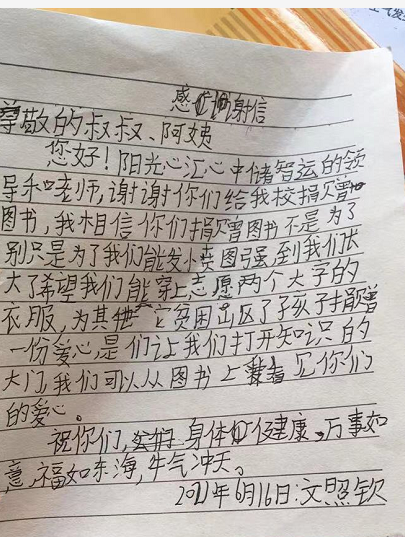 感谢信
尊敬的叔叔、阿姨
您好！阳光心汇心中储智运的领
导和老师，谢谢你们给我校捐赠
图书，我相信你们捐赠图书不是为了
别只是为了我们能发小卖图强，到我们长
大了希望我们能穿上志愿两个大字的
衣服，为其他贫困山区了孩子捐赠
一份爱心，是们让我们打开知识的
大门，我们可以从图书上看见你们
的爱心。
祝你们，身体健康，万事如
意，福如东海，牛气冲天。
2021年6月16日：文照钦